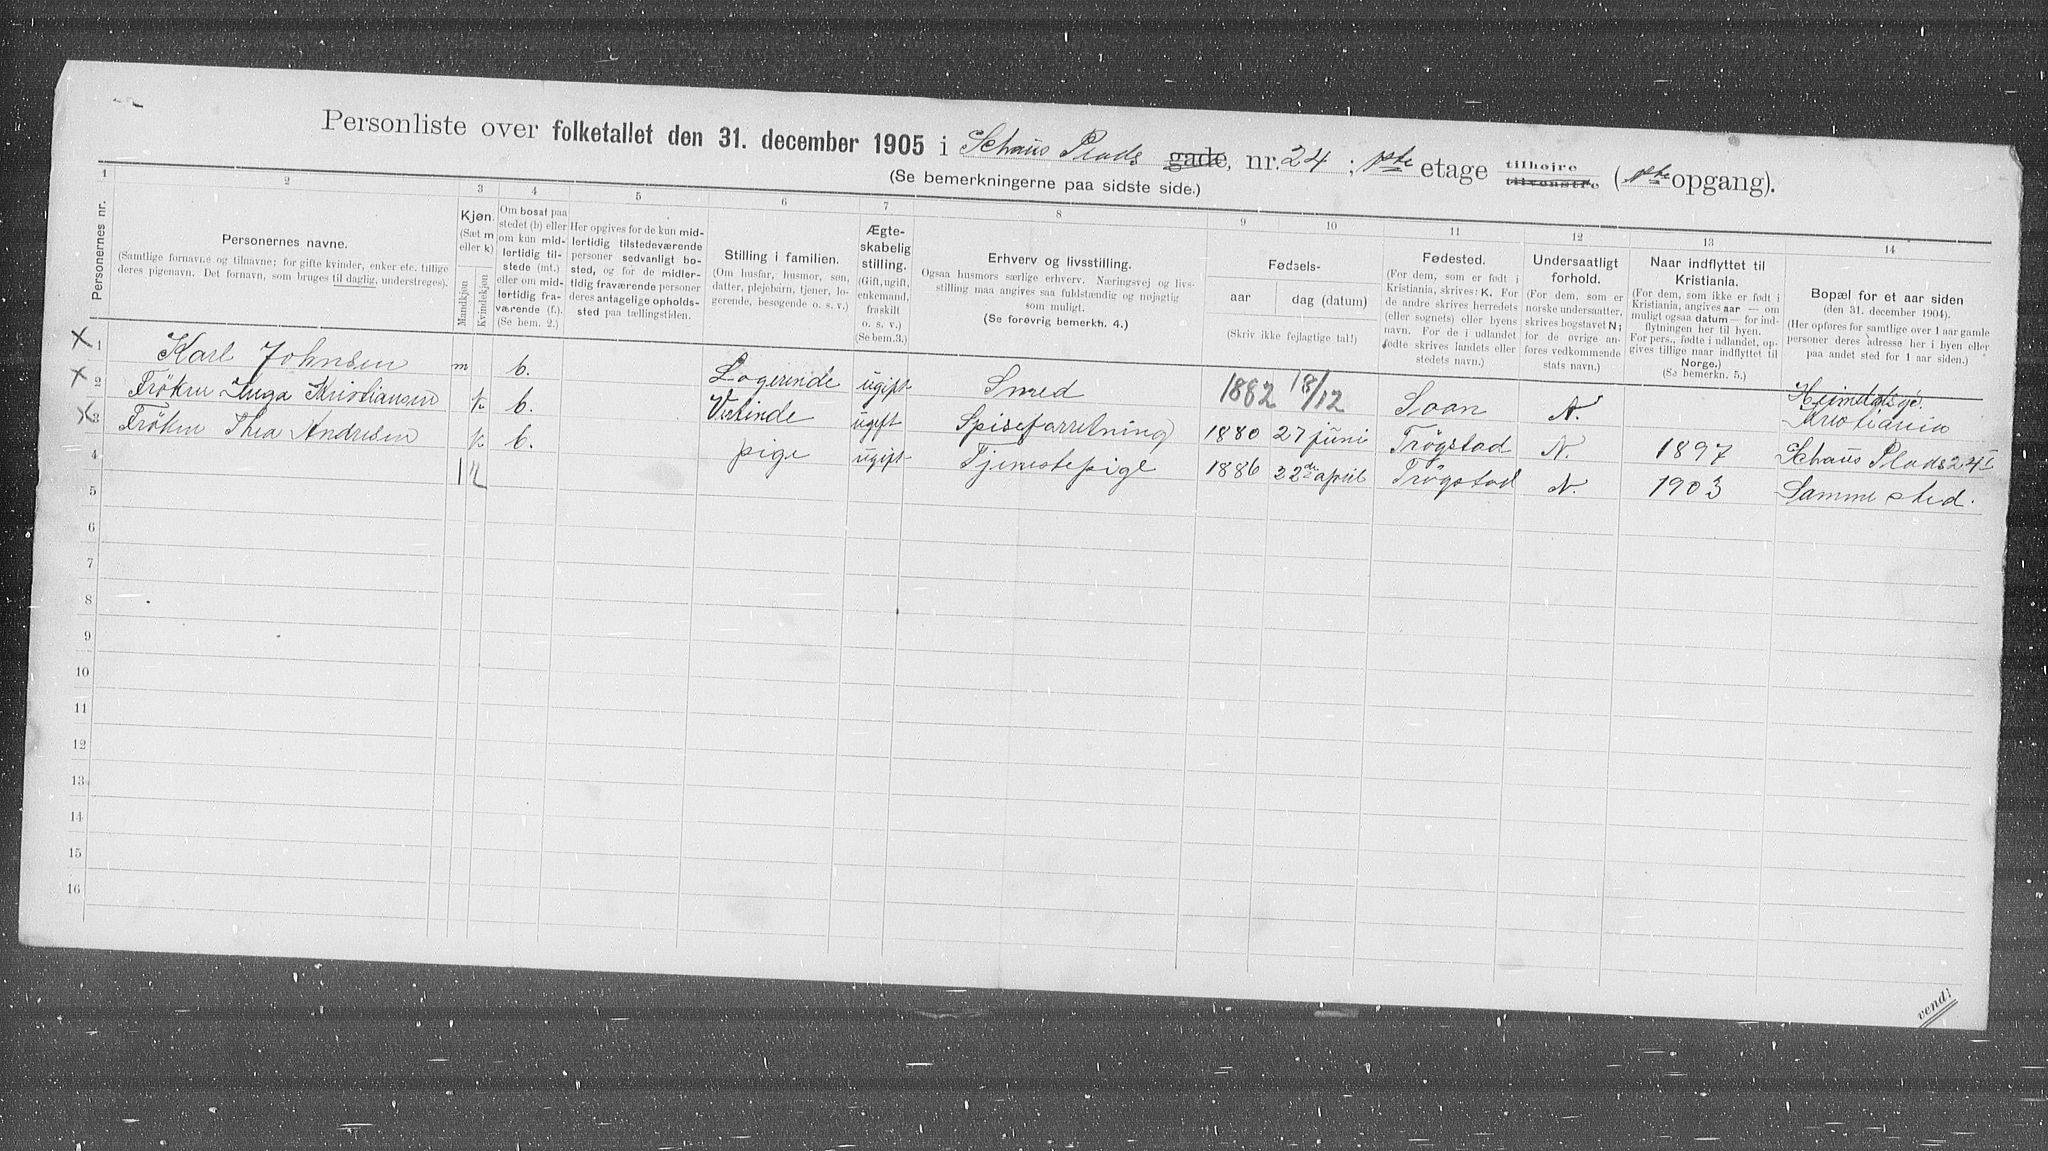 Personliste over folketallet den 31. december 1905 i Schaus Plads gade, nr. 24 ; 1ste etage tilhøjre tilvenstre (1ste opgang).
(Se bemerkningerne paa sidste side.)
1 2 3 4 5 6 7 8 9 10 11 12 13 14
Personernes nr.
Personernes navne.
(Samtlige fornavne og tilnavne; for gifte kvinder, enker etc. tillige deres pigenavn. Det fornavn, som bruges til daglig, understreges).
Kjøn.
(Sæt m eller k)
Mandkjøn
Kvindekjøn
Om bosat paa stedet (b) eller om kun midlertidig tilstede (mt.) eller om midlertidig fraværende (f.).
(Se bem. 2.)
Her opgives for de kun midlertidig tilstedeværende personer sedvanligt bosted, og for de midlertidig fraværende personer deres antagelige opholdssted paa tællingstiden.
Stilling i familien.
(Om husfar, husmor, søn, datter, plejebarn, tjener, logerende, besøgende o. s. v.)
Ægteskabelig stilling.
(Gift, ugift, enkemand, fraskilt o. s. v.)
(Se bem. 3.)
Erhverv og livsstilling.
Ogsaa husmors særlige erhverv. Næringsvej og livsstilling maa angives saa fuldstændig og nøjagtig som muligt.
(Se forøvrig bemerkh. 4.)
Fødsels-
aar
dag (datum)
(Skriv ikke fejlagtige tal!)
Fødested.
(For dem, som er født i Kristiania, skrives: K. For de andre skrives herredets (eller sognets) eller byens navn. For de i udlandet fødte skrives landets eller stedets navn.)
Undersaatligt forhold.
(For dem, som er norske undersaatter, skrives bogstavet N; for de øvrige anføres vedkommende stats navn.)
Naar indflyttet til Kristiania.
(For dem, som ikke er født i Kristiania, angives aar — om muligt ogsaa datum — for indflytningen her til byen. For pers., fødte i udlandet, opgives tillige naar indflyttet til Norge.)
(Se bemerkn. 5.)
Bopæl for et aar siden
(den 31. december 1904).
(Her opføres for samtlige over 1 aar gamle personer deres adresse her i byen eller paa andet sted for 1 aar siden.)
X 1 Karl Johnsen m b. Logerende ugift Smed 1882 18/12 Soon N. Heimdalsgd. Kristiania
X 2 Frøken Inga Kristiansen k b. Vertinde ugift Spiseforretning 1880 27 juni Trøgstad N. 1897 Schaus Plads 24 I
X 3 Frøken Thea Andresen k b. pige ugift Tjenestepige 1886 22de april Trøgstad N. 1903 Samme sted.
4 1 2
5
6
7
8
9
10
11
12
13
14
15
16
vend!